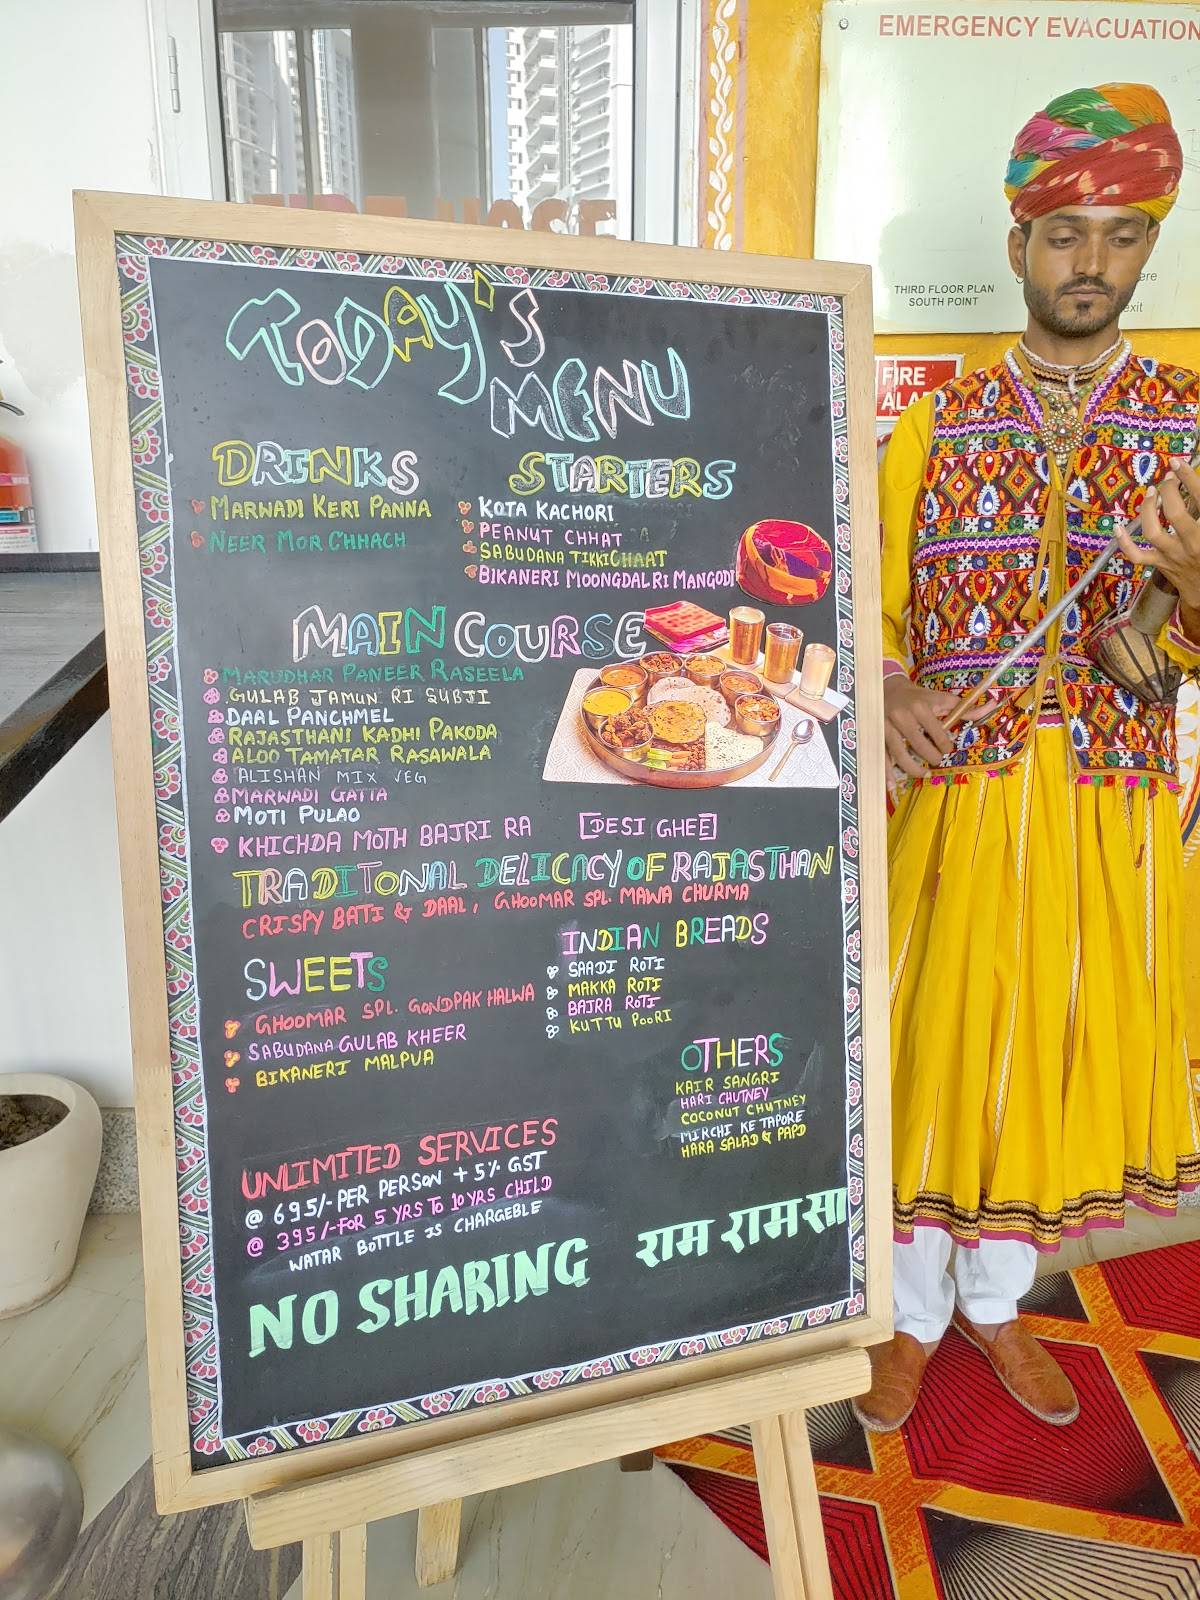 EMERGENCY EVACUATION
THIRD FLOOR PLAN
SOUTH POINT
exit
FIRE
TODAY'S
MENU
DRINKS
MARWADI KERI PANNA
NEER MOR CHHACH
STARTERS
KOTA KACHORI
PEANUT CHHAT
SABUDANA TIKKI CHAAT
BIKANERI MOONGDAL RI MANGODI
MAIN COURSE
MARUDHAR PANEER RASEELA
GULAB JAMUN RI SUBJI
DAAL PANCHMEL
RAJASTHANI KADHI PAKODA
ALOO TAMATAR RASAWALA
ALISHAN MIX VEG
MARWADI GATTA
MOTI PULAO
KHICHDA MOTH BAJRI RA [DESI GHEE]
TRADITONAL DELICACY OF RAJASTHAN
CRISPY BATI & DAAL, GHOOMAR SPL. MAWA CHURMA
SWEETS
GHOOMAR SPL. GONDPAK HALWA
SABUDANA GULAB KHEER
BIKANERI MALPUA
INDIAN BREADS
SAADI ROTI
MAKKA ROTI
BAJRA ROTI
KUTTU POORI
OTHERS
KAIR SANGRI
HARI CHUTNEY
COCONUT CHUTNEY
MIRCHI KE TAPORE
HARA SALAD & PAPD
UNLIMITED SERVICES
@ 695/-PER PERSON + 5% GST
@ 395/-FOR 5 YRS TO 10 YRS CHILD
WATAR BOTTLE IS CHARGEBLE
NO SHARING
राम राम सा